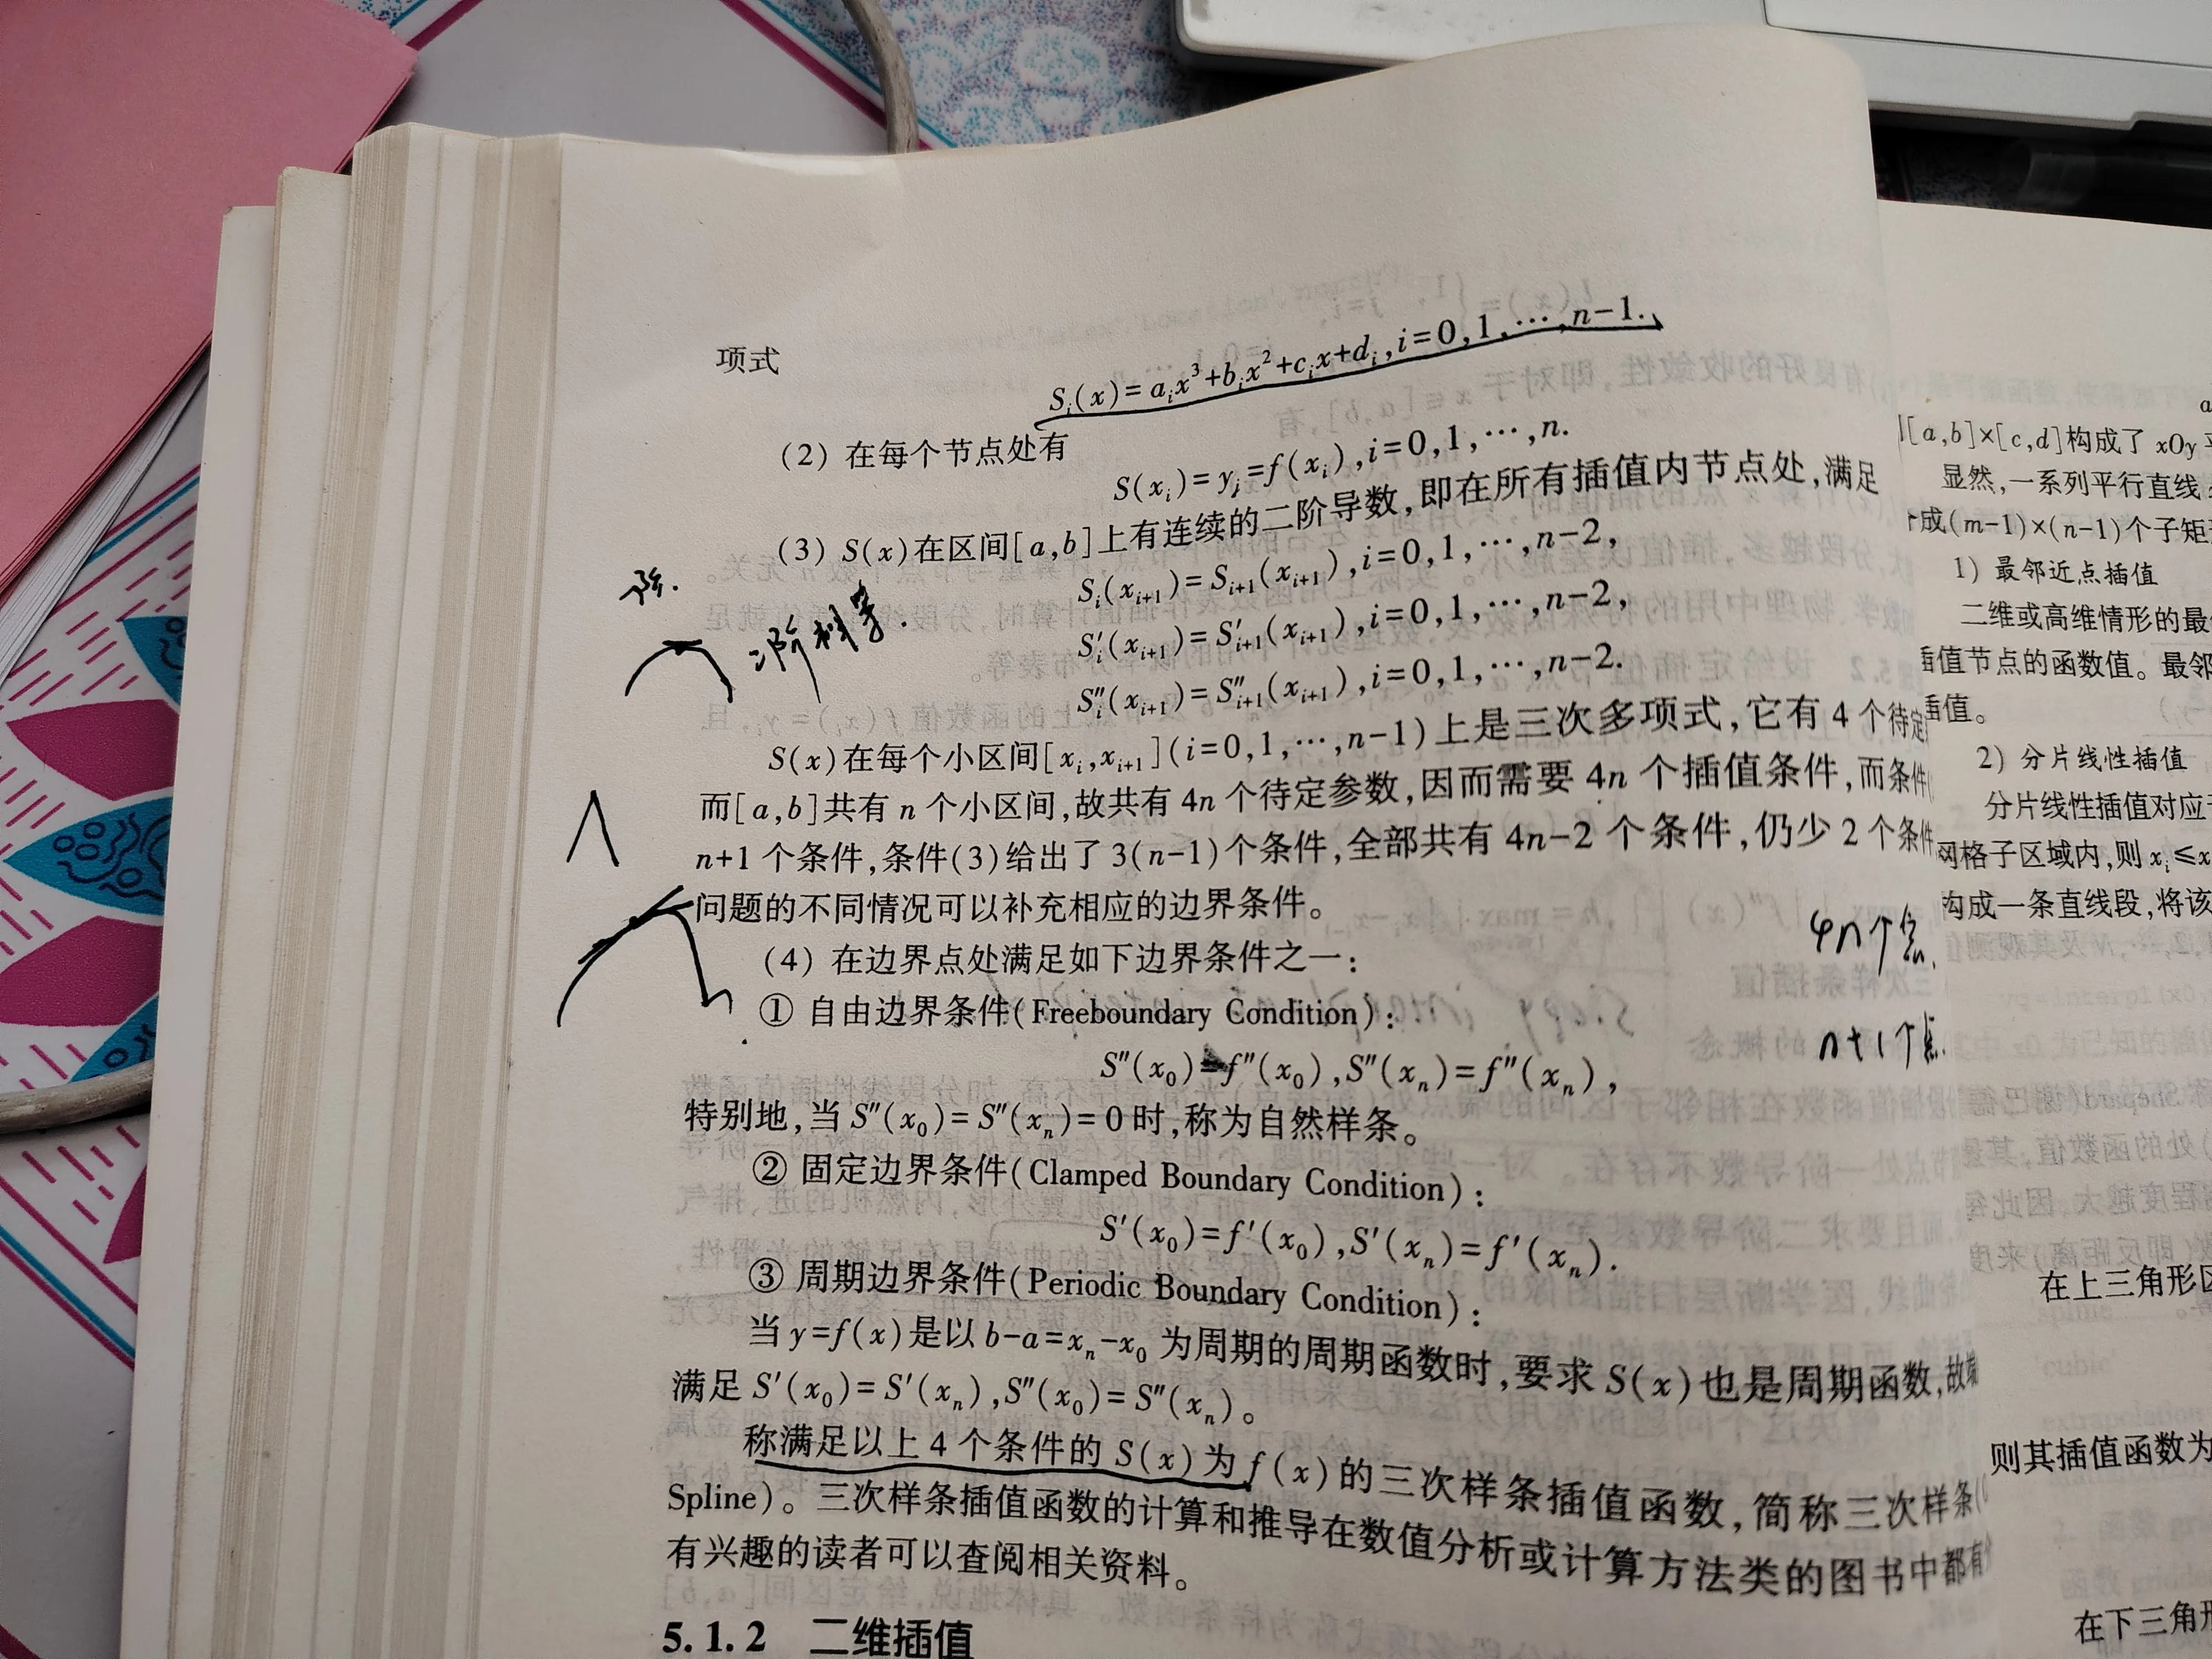 项式
S_i(x)=a_ix^3+b_ix^2+c_ix+d_i,i=0,1,…,n-1.
(2) 在每个节点处有
S(x_i)=y_i=f(x_i),i=0,1,…,n.
(3) S(x)在区间[a,b]上有连续的二阶导数,即在所有插值内节点处,满足
S_i(x_{i+1})=S_{i+1}(x_{i+1}),i=0,1,…,n-2,
S'_i(x_{i+1})=S'_{i+1}(x_{i+1}),i=0,1,…,n-2,
二阶
S''_i(x_{i+1})=S''_{i+1}(x_{i+1}),i=0,1,…,n-2.
S(x)在每个小区间[x_i,x_{i+1}](i=0,1,…,n-1)上是三次多项式,它有4个待定
而[a,b]共有n个小区间,故共有4n个待定参数,因而需要4n个插值条件,而条件
n+1个条件,条件(3)给出了3(n-1)个条件,全部共有4n-2个条件,仍少2个条件
问题的不同情况可以补充相应的边界条件。
4n个
(4) 在边界点处满足如下边界条件之一:
① 自由边界条件(Freeboundary Condition):
n+1个点.
S''(x_0)=f''(x_0),S''(x_n)=f''(x_n),
特别地,当S''(x_0)=S''(x_n)=0时,称为自然样条。
② 固定边界条件(Clamped Boundary Condition):
S'(x_0)=f'(x_0),S'(x_n)=f'(x_n).
③ 周期边界条件(Periodic Boundary Condition):
当y=f(x)是以b-a=x_n-x_0为周期的周期函数时,要求S(x)也是周期函数,故端
满足S'(x_0)=S'(x_n),S''(x_0)=S''(x_n)。
称满足以上4个条件的S(x)为f(x)的三次样条插值函数,简称三次样条(
Spline)。三次样条插值函数的计算和推导在数值分析或计算方法类的图书中都有
有兴趣的读者可以查阅相关资料。
5.1.2 二维插值
[a,b]×[c,d]构成了xOy
显然,一系列平行直线
成(m-1)×(n-1)个子矩
1) 最邻近点插值
二维或高维情形的最
插值节点的函数值。最邻
插值。
2) 分片线性插值
分片线性插值对应于
网格子区域内,则x_i≤x
构成一条直线段,将该
在上三角形区
则其插值函数为
在下三角形